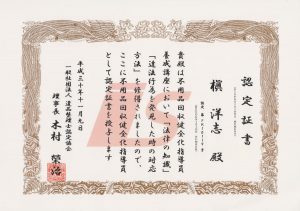 認定証書
槇 洋志 殿
貴殿は不用品回収健全化指導員
養成講座において「法律の知識」
「違法行為を発見した時の対応
方法」を修得されましたので、
ここに不用品回収健全化指導員
として認定証書を授与します
平成三十年十一月九日
一般社団法人 遺品整理士認定協会
理事長 木村 榮治